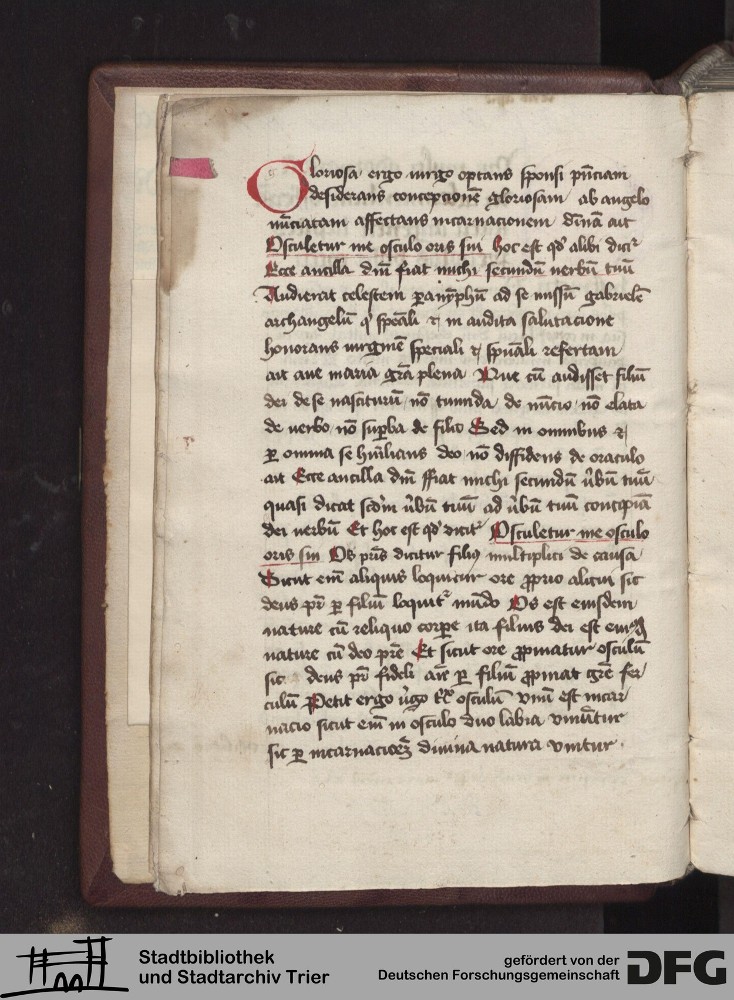 Gloriosa ergo virgo optans sponsi pn̄ciam
desiderans concepcionē gloriosam ab angelo
nūciatam affectans incarnacionem diūiā ait
Osculetur me osculo oris sui Hoc est qđ alibi dicit᷑
Ecce ancilla dn̄i fiat michi secundū uerbū tuū
Audierat celestem ꝑanȳphū ad se missū gabrielē
archangelū qͥ spēali ⁊ in audita salutacione
honorans virginē speciali ⁊ spūali refertam
ait aue maria grā plena Que cū audisset filiū
dei de se nasciturū nō timida de nūcio nō elata
de uerbo nō suꝑba de filio Sed in omnibus ⁊
ꝑ omnia se hūilians deo nō diffidens de oraculo
ait Ecce ancilla dn̄i ffiat michi secundū v̄bū tuū
quasi dicat scd̄m v̄bū tuū ad v̄bū tuū concipiā
dei verbū Et hoc est qđ dicit᷑ Osculetur me osculo
oris sui Os pr̄is dicitur filiꝰ multiplici de causa
Sicut em̄ aliquis loquitur ore ꝓprio alicui sic
deus pr̄ ꝑ filiū loquit᷑ mūdo Os est eiusdem
nature cū reliquo corꝑe ita filius dei est eiusdē
nature cū deo pr̄e Et sicut ore ꝓpinatur osculū
sic deus pr̄ fideli aīe ꝑ filiū ꝓpinat grē fer
culū Petit ergo v̄go osculū vnū est incar
nacio sicut em̄ in osculo duo labia vniūtur
sic ꝑ incarnacioēȝ diuina natura vnitur
Stadtbibliothek
und Stadtarchiv Trier
gefördert von der
Deutschen Forschungsgemeinschaft
DFG